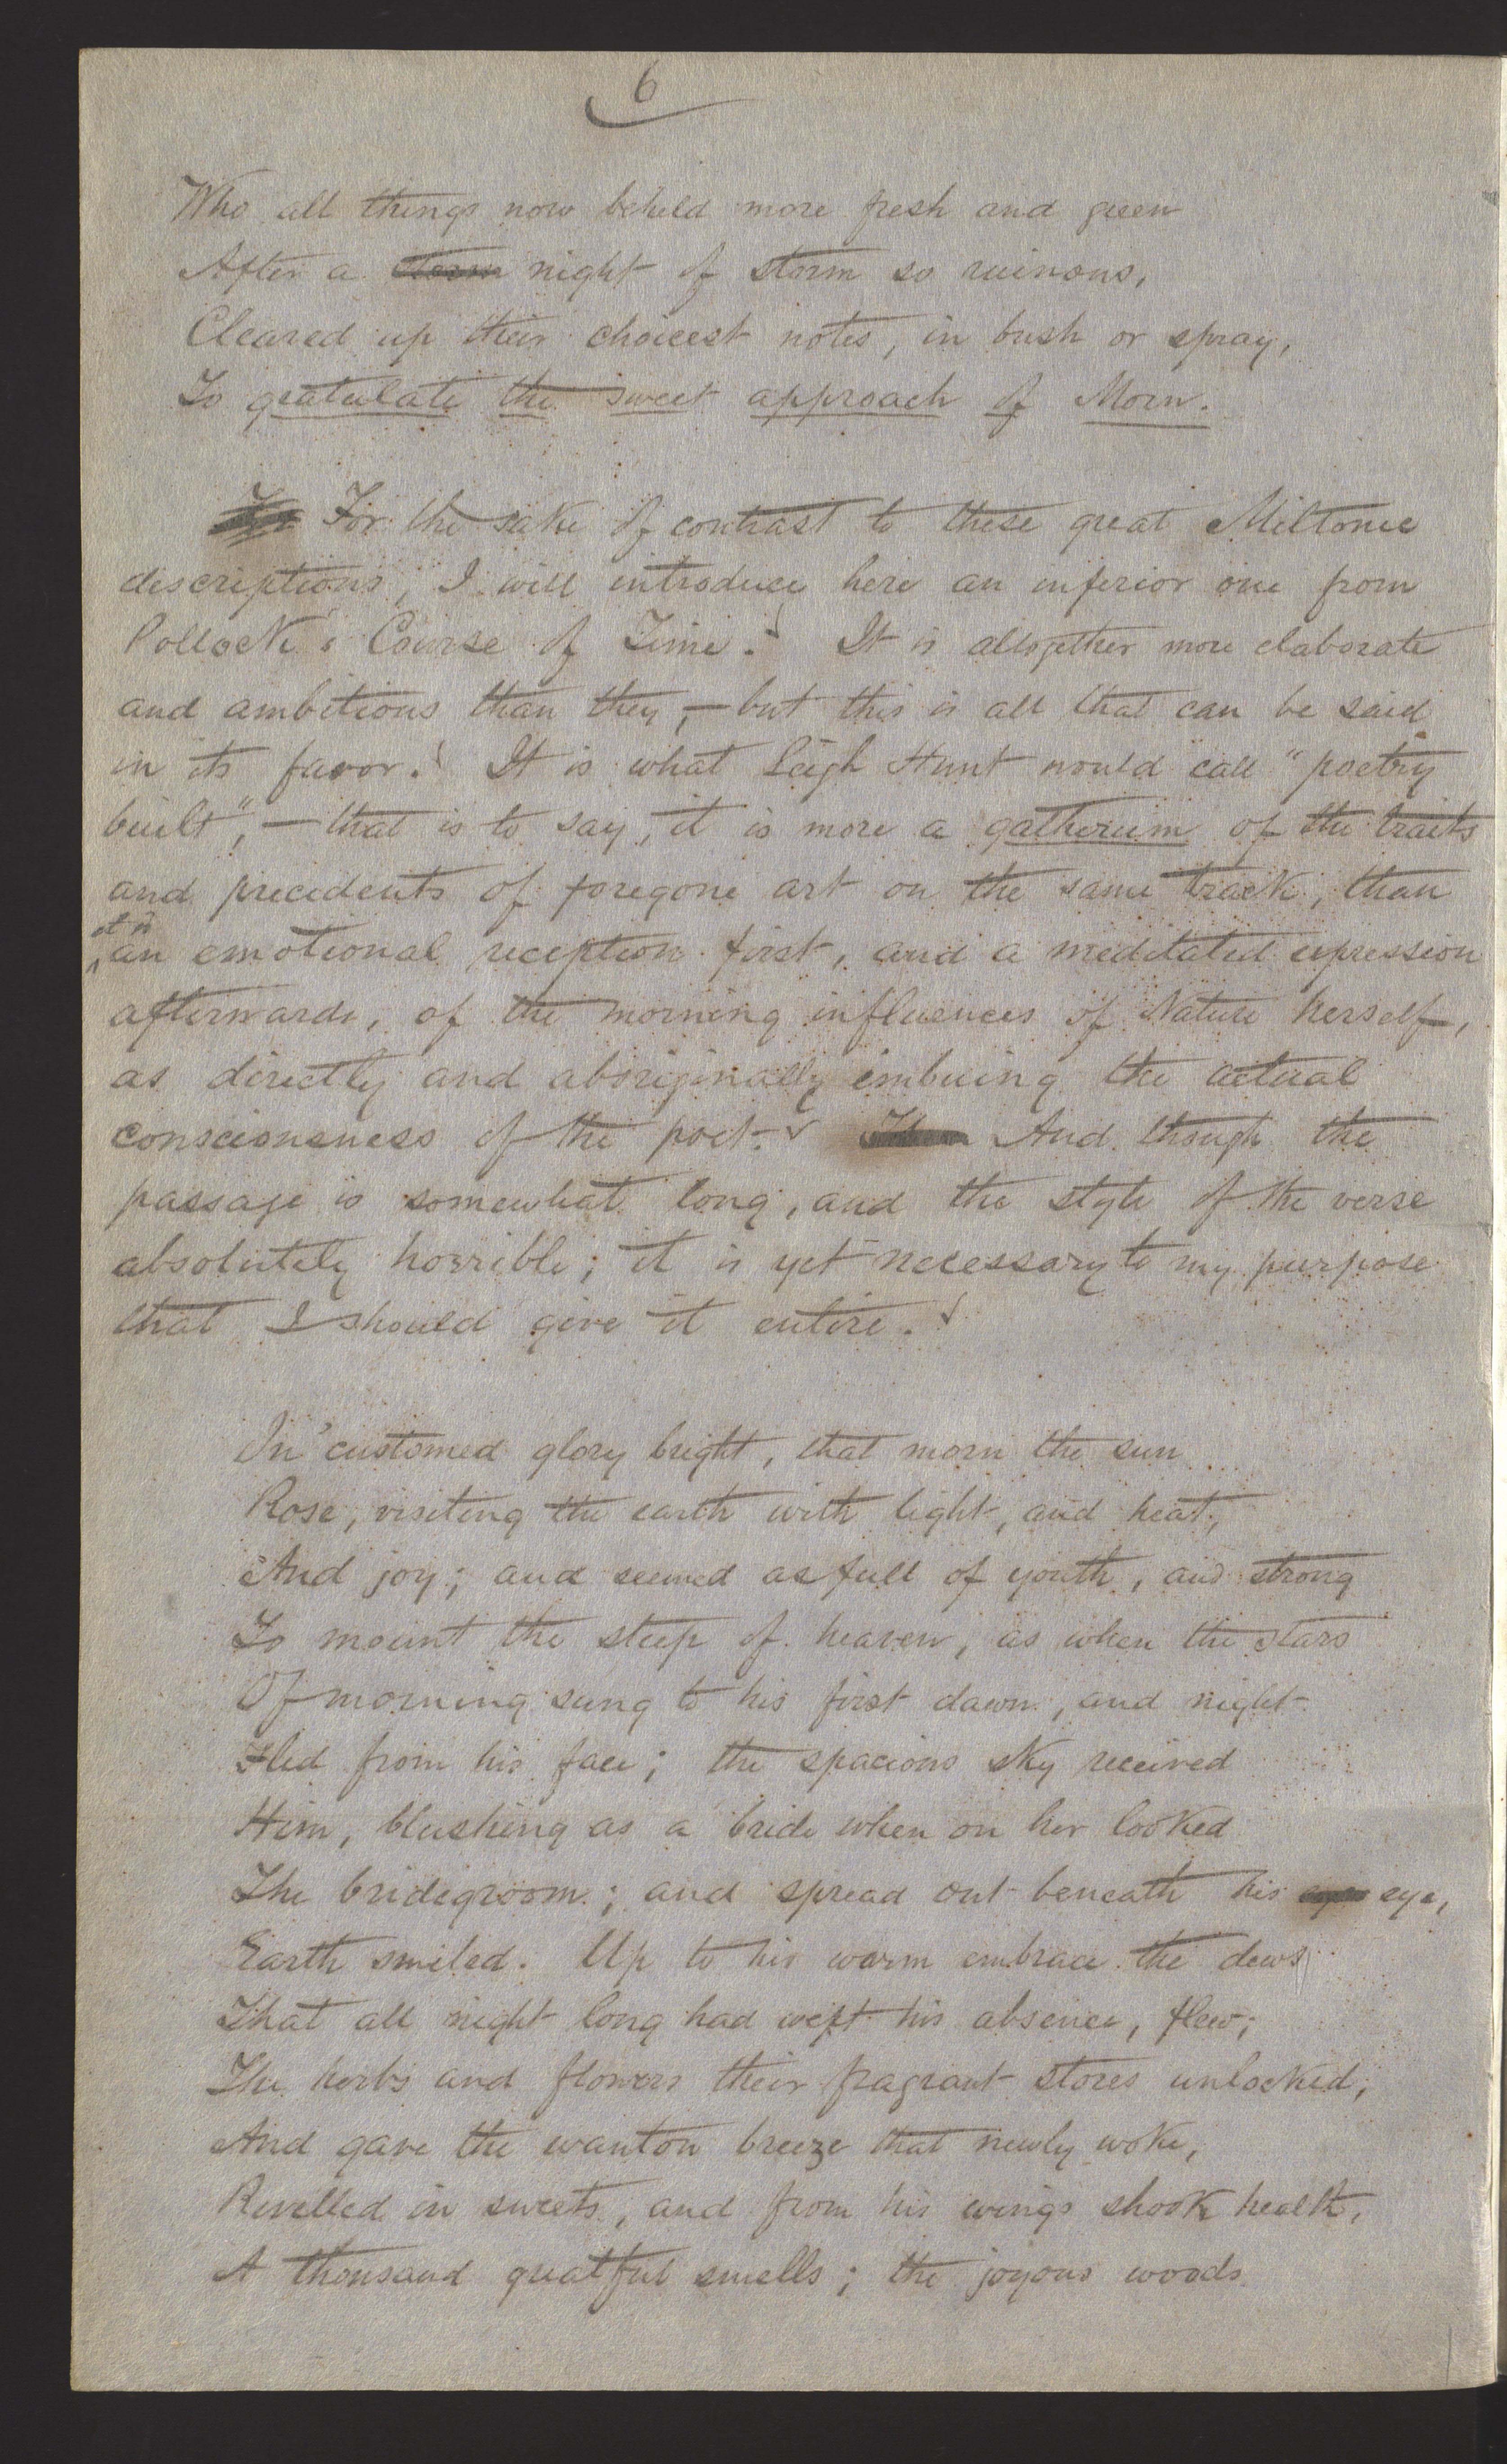 6
Who all things now beheld more fresh and green
After a storm night of storm so ruinous,
Cleared up their choicest notes, in bush or spray,
To gratulate the sweet approach of Morn.
For For the sake of contrast to these great Miltonic
descriptions, I will introduce here an inferior one from
Pollock's Course of Time. It is altogether more elaborate
and ambitious than they,—but this is all that can be said
in its favor. It is what Leigh Hunt would call "poetry
built",—that is to say, it is more a gatherum of the traits
and precedents of foregone art on the same track, than
an emotional reception first, and a meditated expression
afterwards, of the morning influences of Nature herself,
as directly and aboriginally imbuing the actual
consciousness of the poet. And though the
passage is somewhat long, and the style of the verse
absolutely horrible; it is yet necessary to my purpose
that I should give it entire.
In 'customed glory bright, that morn the sun
Rose, visiting the earth with light, and heat,
And joy; and seemed as full of youth, and strong
To mount the steep of heaven, as when the stars
Of morning sung to his first dawn, and night
Fled from his face; the spacious sky received
Him, blushing as a bride when on her looked
The bridegroom; and spread out beneath his eye,
Earth smiled. Up to his warm embrace the dews
That all night long had wept his absence, flew;
The herbs and flowers their fragrant stores unlocked,
And gave the wanton breeze that newly woke,
Revelled in sweets, and from his wings shook health,
A thousand greatful smells; the joyous woods